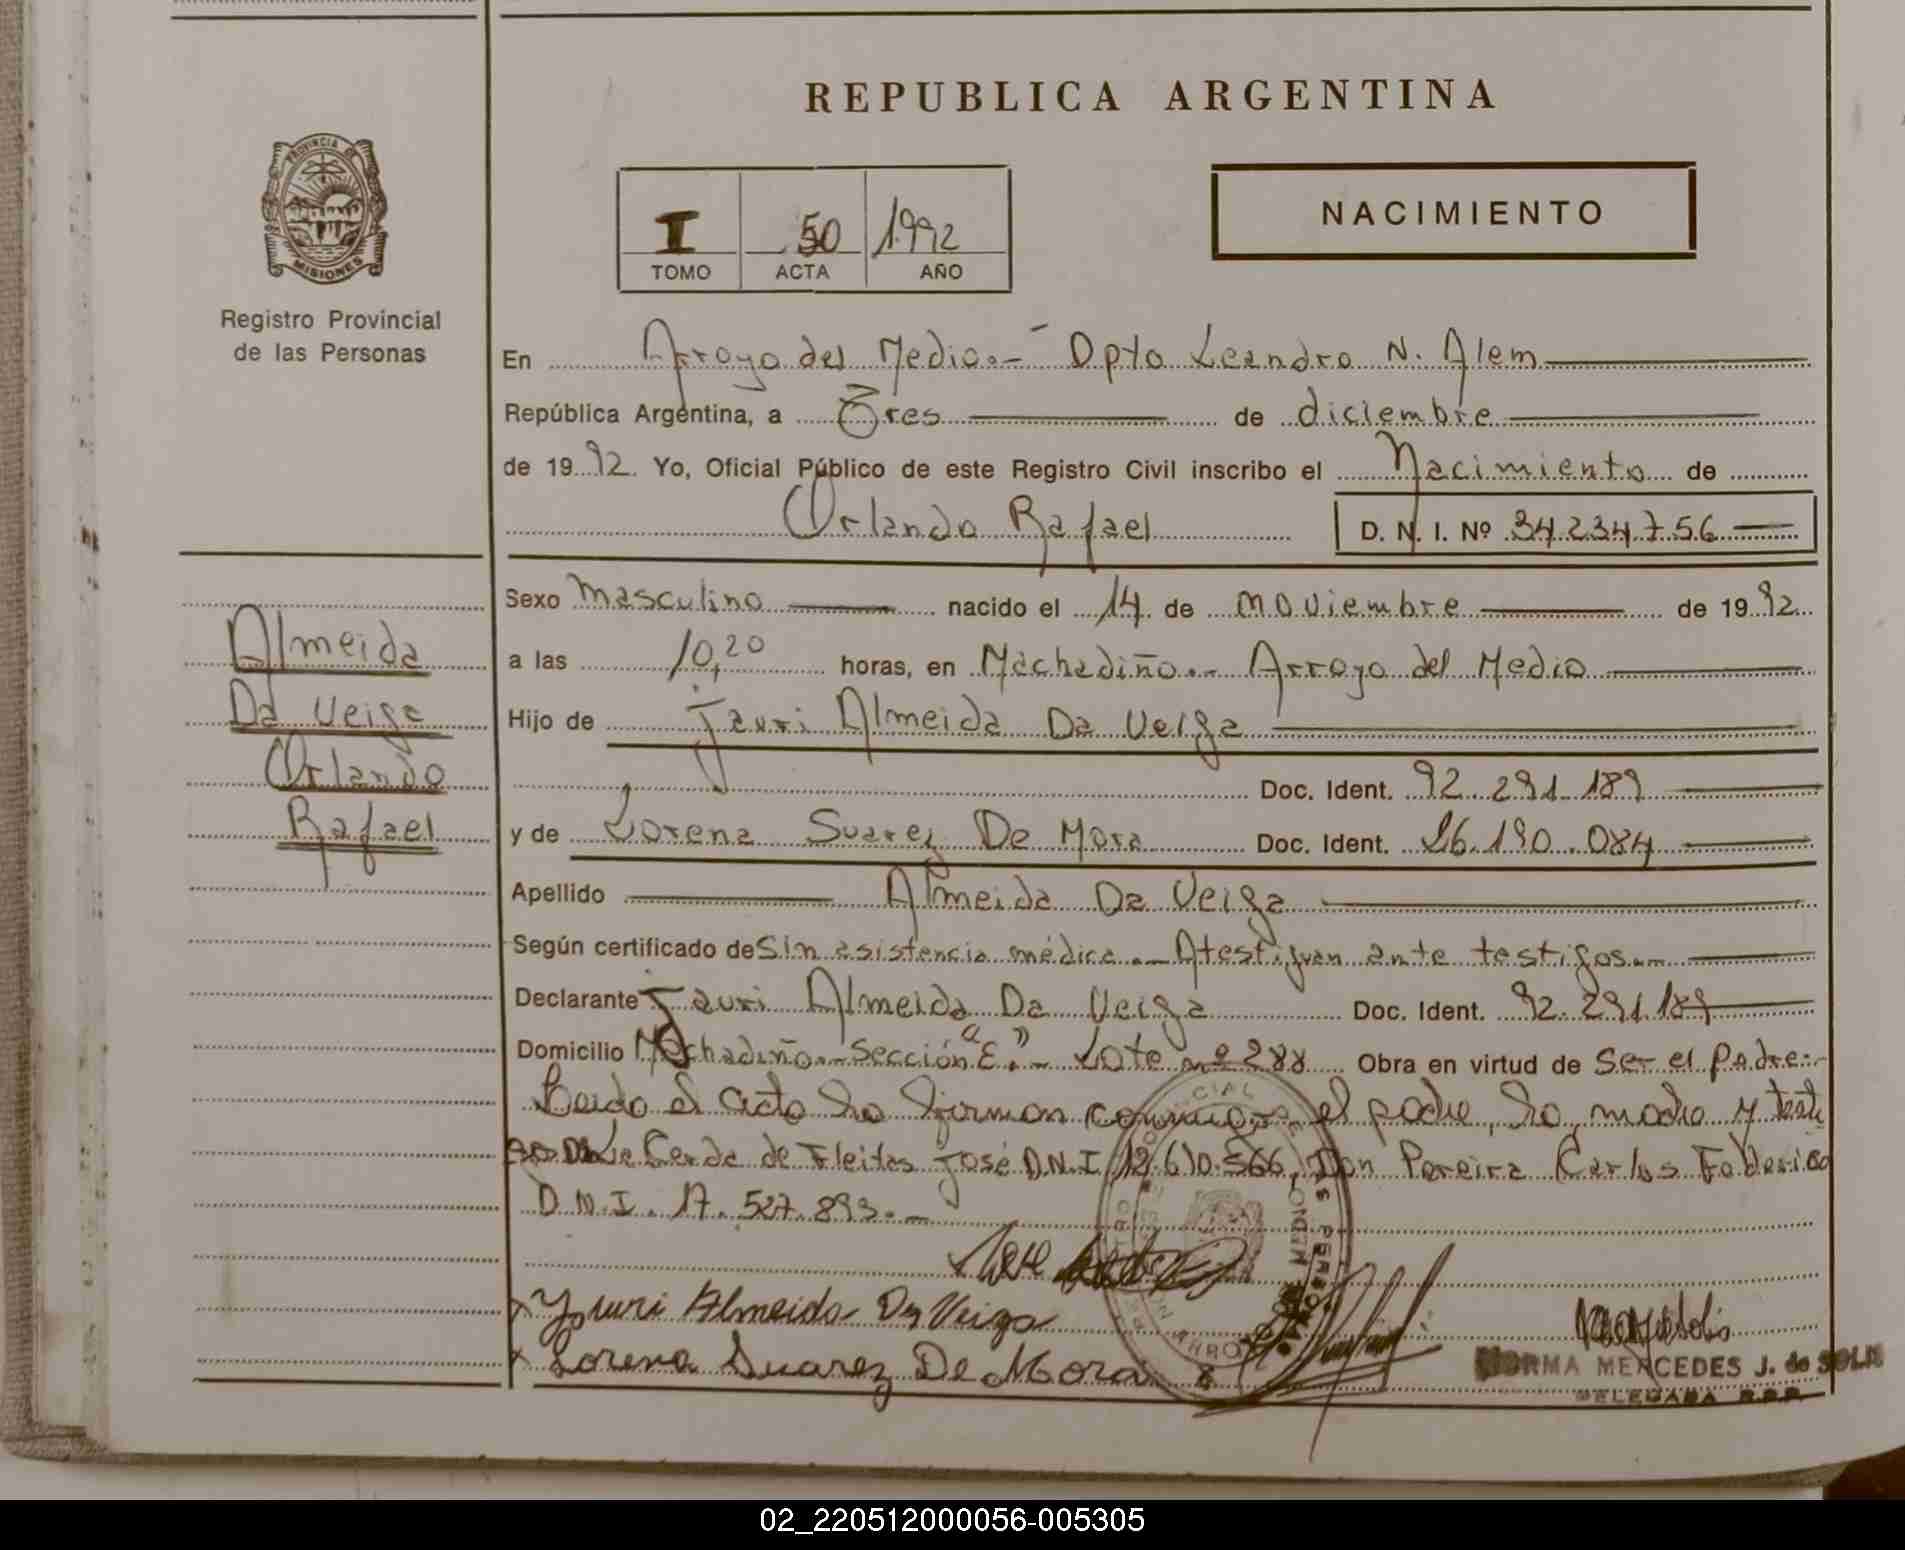 REPUBLICA ARGENTINA
PROVINCIA DE MISIONES
Registro Provincial
de las Personas
I 50 1992
TOMO ACTA AÑO
NACIMIENTO
En Arroyo del Medio.- Dpto Leandro N. Alem
República Argentina, a Tres de diciembre
de 1992. Yo, Oficial Público de este Registro Civil inscribo el Nacimiento de
Orlando Rafael D. N. I. Nº 34.234.756
Almeida
Da Veiga
Orlando
Rafael
Sexo Masculino nacido el 14 de noviembre de 1992
a las 10,20 horas, en Machadiño.- Arroyo del Medio
Hijo de Jauri Almeida Da Veiga
Doc. Ident. 92.291.189
y de Lorena Suarez De Mora Doc. Ident. 26.190.084
Apellido Almeida Da Veiga
Según certificado de Sin asistencia médica.- Atestiguan ante testigos.-
Declarante Jauri Almeida Da Veiga Doc. Ident. 92.291.189
Domicilio Machadiño.- Sección "E".- Lote nº 288 Obra en virtud de Ser el padre.-
Leido el acta la firman conmigo el padre, la madre y testi
Cerda de Fleitas José D.N.I. 12.610.566, Don Pereira Carlos Federico
D.N.I. 17.527.893.-
Jauri Almeida Da Veiga
Lorena Suarez De Mora
NORMA MERCEDES J. de SOLIS
DELEGADA R.P.P.
02_220512000056-005305